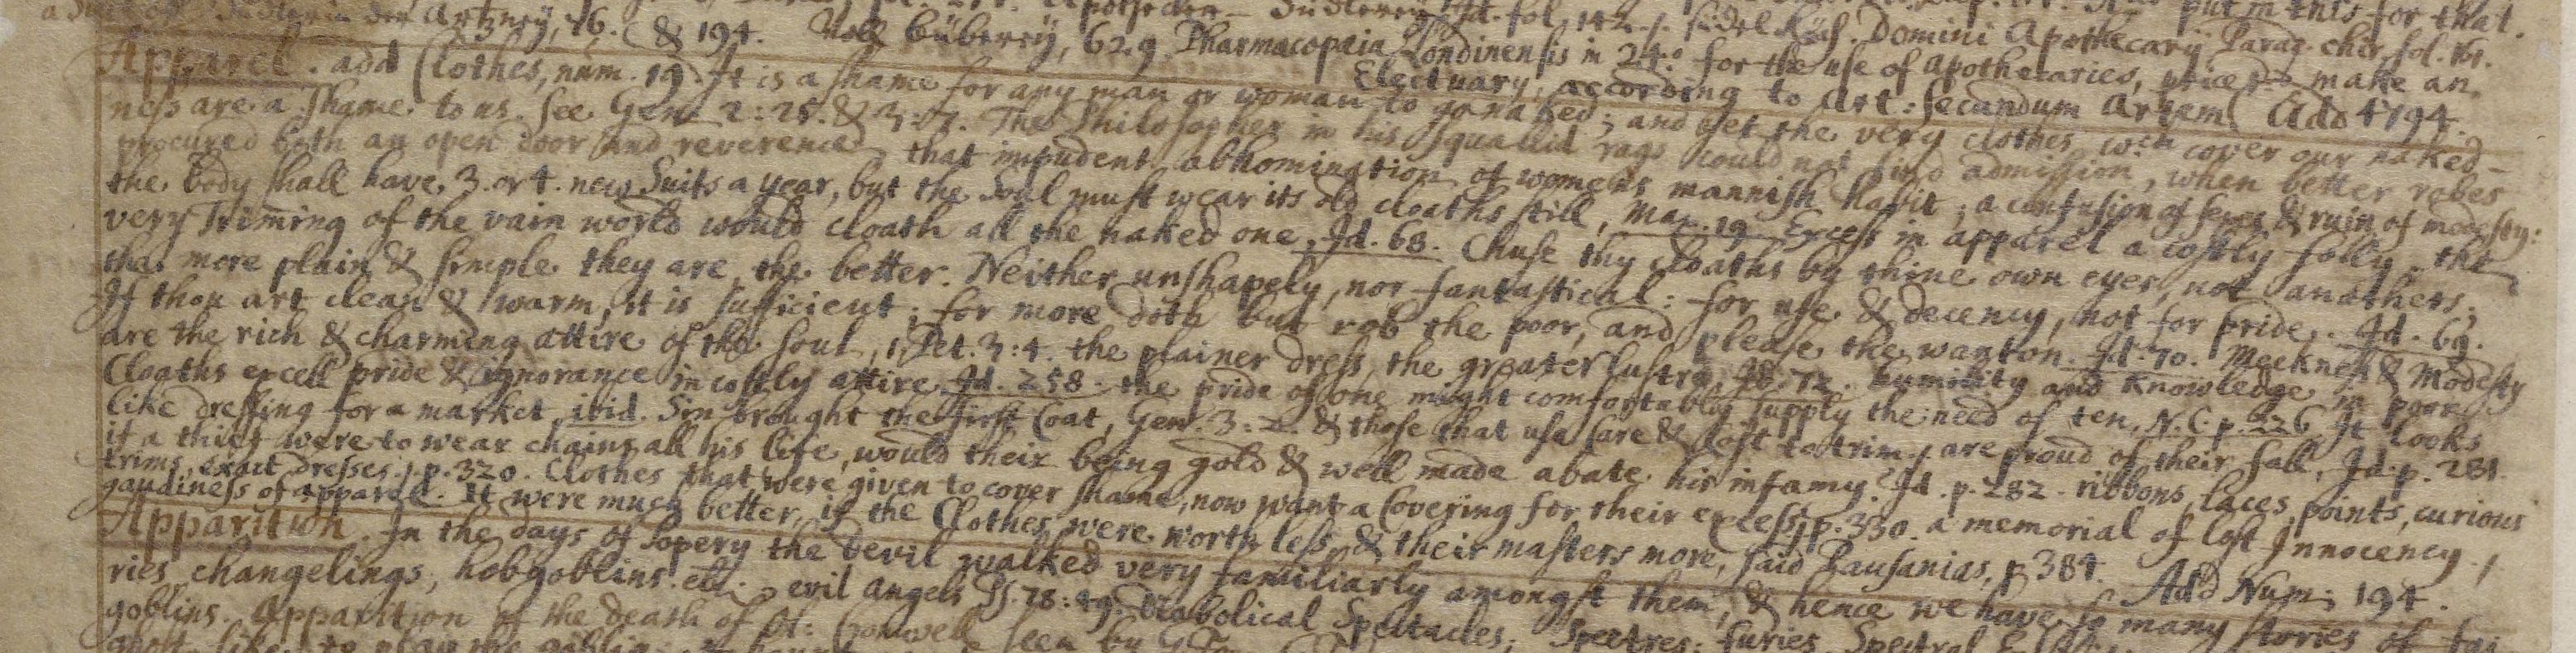 der Artzneÿ, 76. (& 194. Voll büberеÿ, 629. Pharmacopaia Londinensis in 24.° for the use of Apothecaries, price
Apparel. add Clothes, num. 19. It is a shame for any man or woman to go naked; and yet the very clothes wch cover our naked-
Electuary, according to Art: secundum Artem. (Add 4794.
ness are a shame to us. see Gen. 2:25. & 3:7. The Philosopher in his squallid rags could not find admission, when better robes
procured both an open door and reverence, that impudent abhomination of womens mannish habit, a confusion of sexes & ruin of modesty:
the body shall have 3. or 4. new Suits a year, but the Soul must wear its old cloaths still, Max. 19. Excess in apparel a costly folly, the
very Triming of the vain world would cloath all the naked one, Id. 68. Chuse thy cloaths by thine own eyes, not anothers;
the more plain & simple they are, the better. Neither unshapely, nor fantastical: for use & decency, not for pride. Id. 69.
If thou art clean & warm, it is sufficient; for more doth but rob the poor, and please the wanton. Id. 70. Meekness & Modesty
are the rich & charming attire of the soul, 1. Pet. 3:4. the plainer dress, the greater lustre, Ib. 72. humility and knowledge in poor
Cloaths excell pride & ignorance in costly attire Id. 258. the pride of one might comfortably supply the need of ten, N.C. p. 226. It looks
like dressing for a market, ibid. Sin brought the first Coat, Gen. 3:2. & those that use Care & Cost to trim, are proud of their fall, Id. p. 281.
if a thief were to wear chains all his life, would their being gold & well made abate his infamy? Id. p. 282. ribbons, laces, points, curious
trims, exact dresses, p. 320. Clothes that were given to cover shame, now want a Covering for their excess, p. 330. a memorial of lost Innocency,
gaudiness of apparel. It were much better, if the Clothes were worth less, & their masters more, said Pausanias, p. 384. Add Num: 194.
Apparition. In the days of Popery the Devil walked very familiarly amongst them, & hence we have so many stories of fai-
ries, changelings, hobgoblins etc. evil angels Ps. 78:49. Diabolical Spectacles, Spectres, furies, Spectral
goblins. Apparition of the death of Ol: Cromwell seen by
ghost-like, to play the goblin,